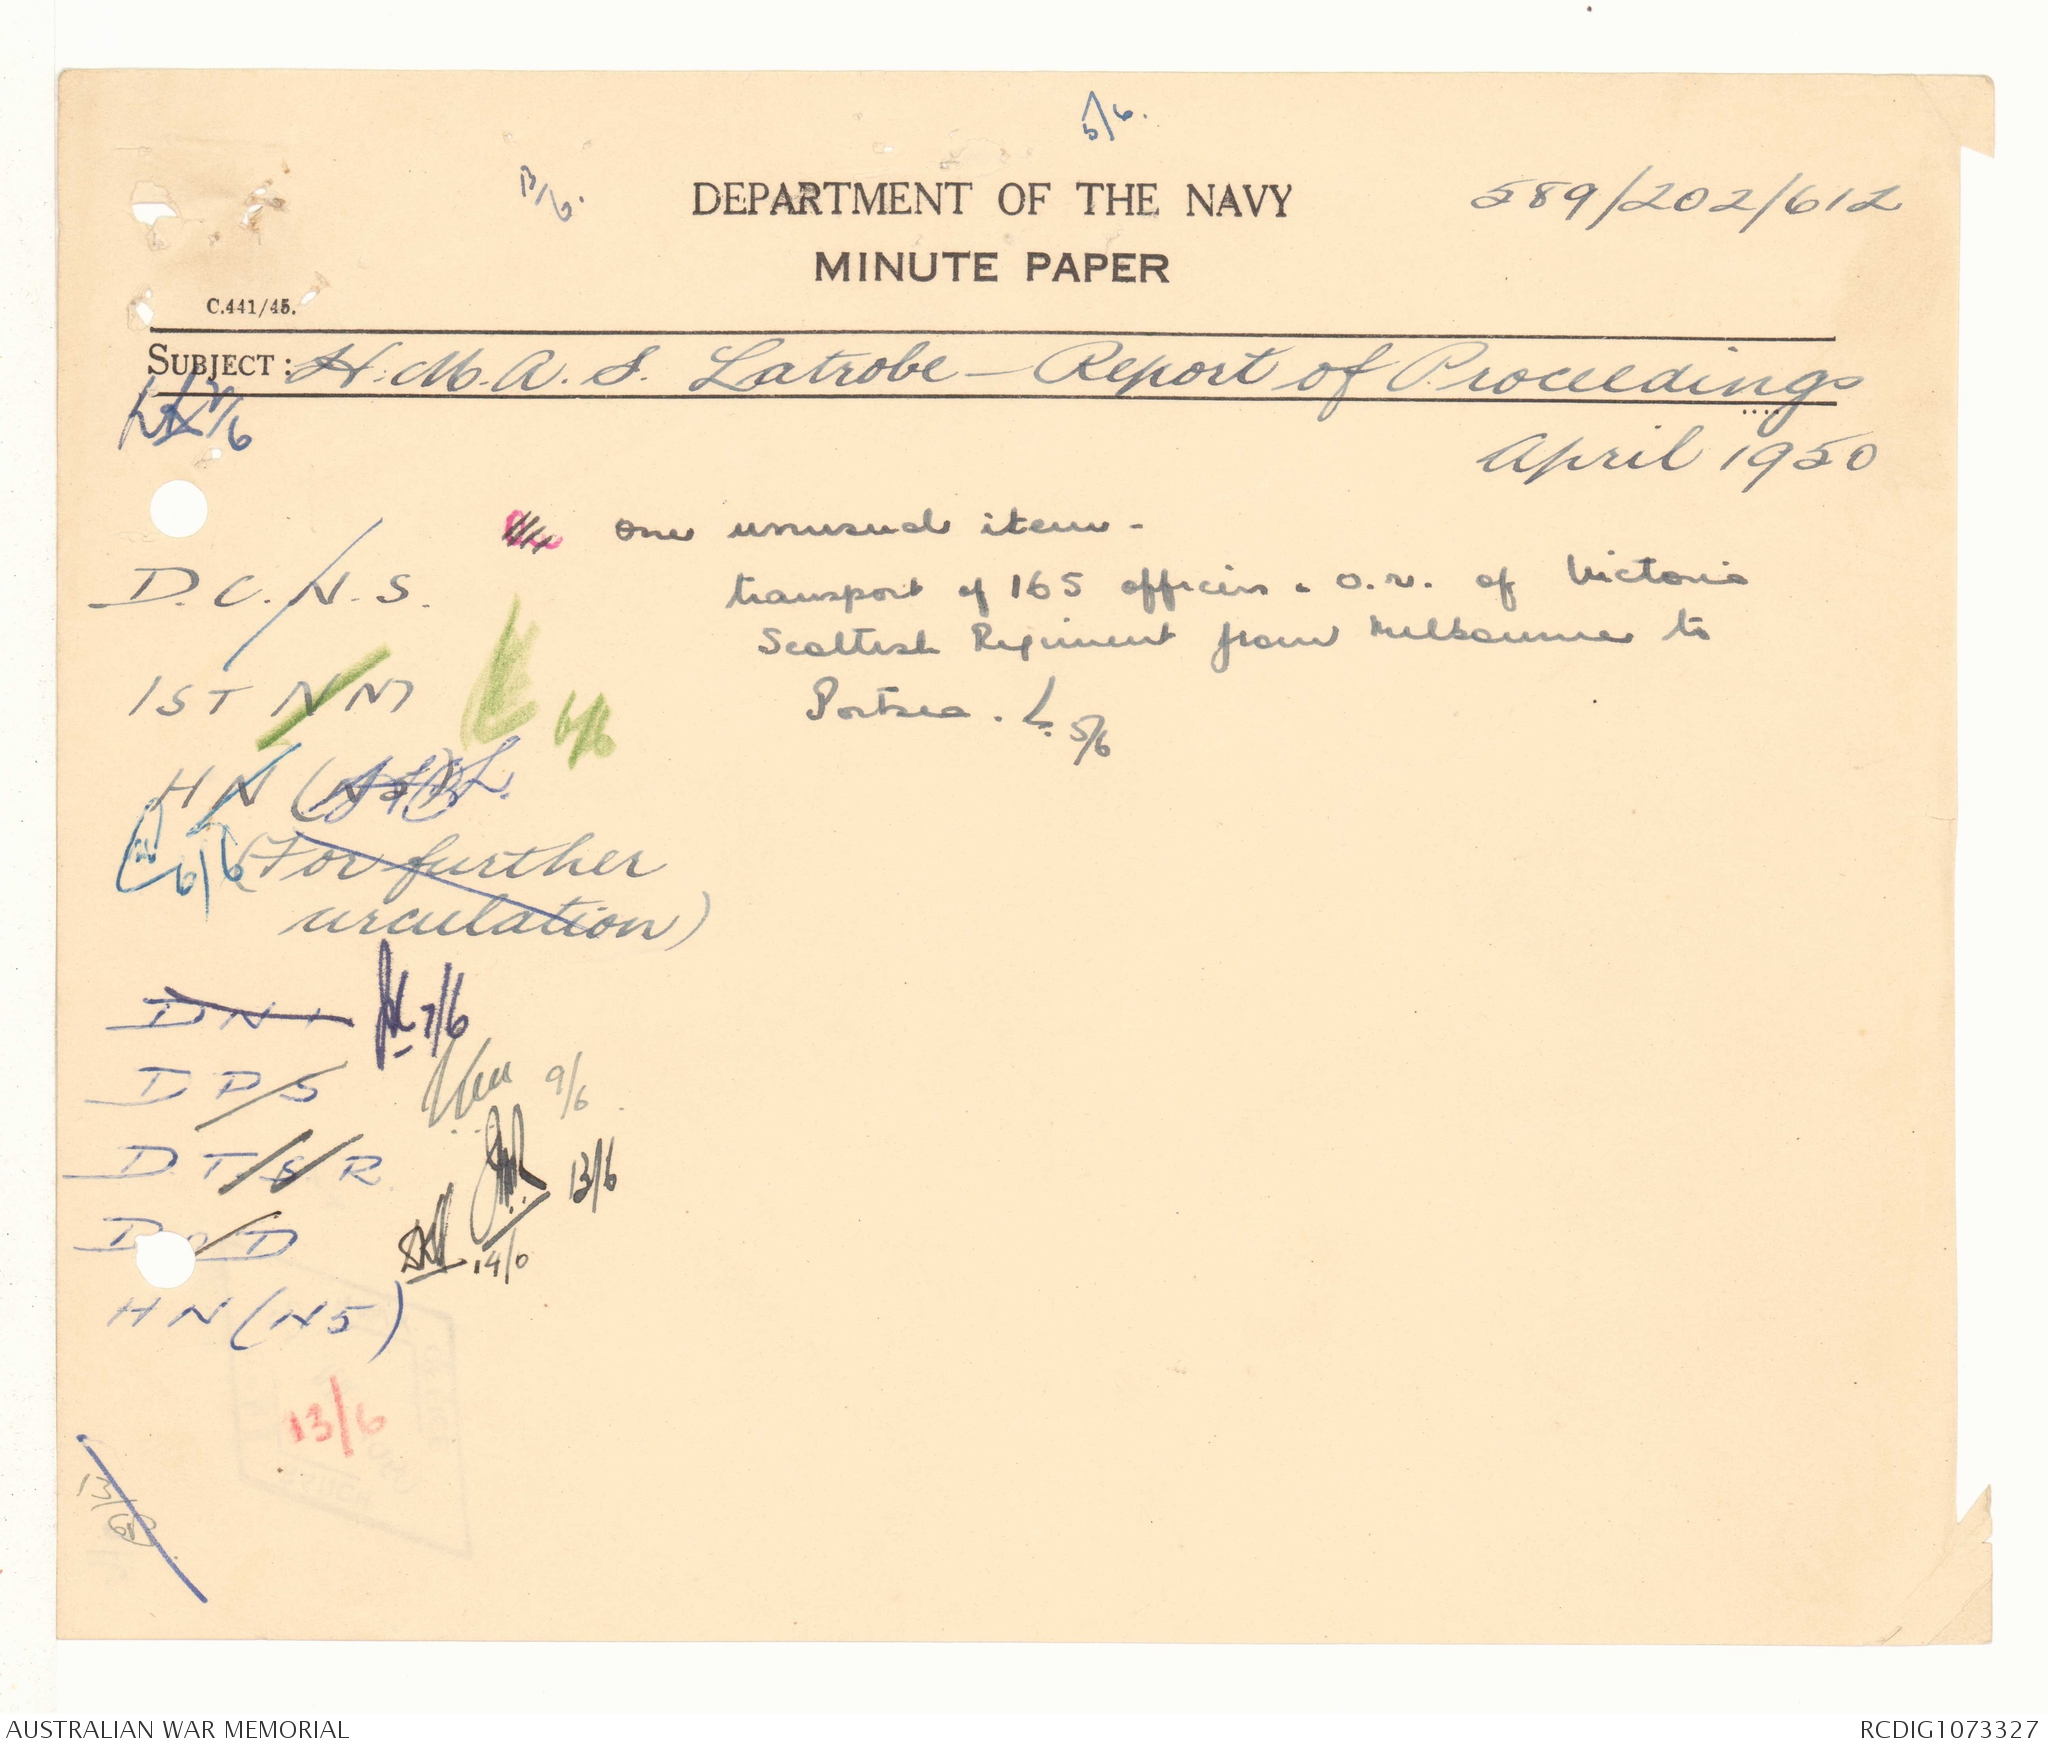 5/6.
13/6.
DEPARTMENT OF THE NAVY
589/202/612
MINUTE PAPER
C.441/45.
SUBJECT: H.M.A.S. Latrobe - Report of Proceedings
April 1950
2/6
One unusual item -
D.C.N.S.
transport of 165 officers & O.R. of Victoria
Scottish Regiment from Melbourne to
1ST NM
6/6
Portsea. L. 5/6
HN (
6/6 (For further
circulation)
DNI 7/6
DPS 9/6
DTSR 13/6
D D 14/6
HN (N5)
13/6
13/6
AUSTRALIAN WAR MEMORIAL
RCDIG1073327